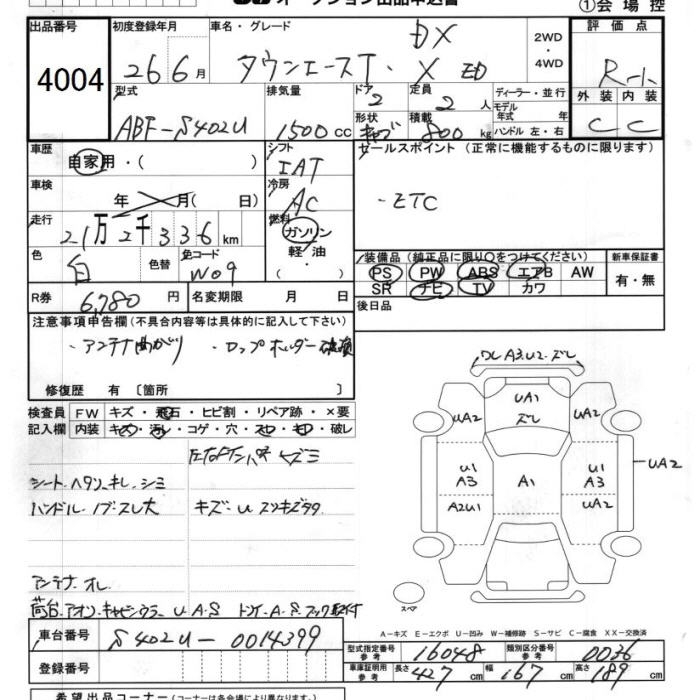 ①会場控
出品番号 4004
初度登録年月 26 6月
車名・グレード タウンエースT. DX X ED
2WD・4WD
評価点 R-1
外装 C 内装 C
型式 ABF-S402U
排気量 1500cc
ドア 2 形状
定員 2人 積載 800kg
ディーラー・並行
モデル年式 年
ハンドル 左・右
車歴 自家用・( )
シフト IAT
セールスポイント (正常に機能するものに限ります)
・ETC
車検 年 月( 日)
冷房 AC
走行 21万2千336km
燃料 ガソリン 軽油 ( )
色 白 色替 色コード W09
装備品 (純正品に限り○をつけてください)
PS PW ABS エアB AW
SR ナビ TV カワ
新車保証書 有・無
R券 6,780円 名変期限 月 日
後日品
注意事項申告欄(不具合内容等は具体的に記入して下さい)
・アンテナ曲がり
修復歴 有 〔箇所 〕
検査員記入欄
FW キズ・飛石・ヒビ割・リペア跡・×要
内装 キズ・汚レ・コゲ・穴・スレ・モレ・破レ
シート ヘタリ キレ シミ
アンテナ オレ
DL A3.U2.ズレ
UA1
ズレ
UA2 UA2
U1 A3 A1 U1 A3 UA2
A2U1 UA2
スペア
A-キズ E-エクボ U-凹み W-補修跡 S-サビ C-腐食 XX-交換済
車台番号 S402U-0014399
型式指定番号 参考 16048 類別区分番号 参考 0036
登録番号
車庫証明用 参考 長さ 427cm 幅 167cm 高さ 189cm
希望出品コーナー